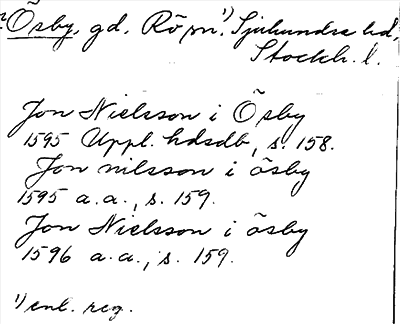 Ösby, gd, Rö sn.¹⁾ Sjuhundra hd,
Stockh. l.
Jon Nielsson i Ösby
1595 Uppl. hdsdb, s. 158.
Jon nilsson i ösby
1595 a.a., s. 159.
Jon Nielsson i ösby
1596 a.a., s. 159.
¹⁾ enl. reg.